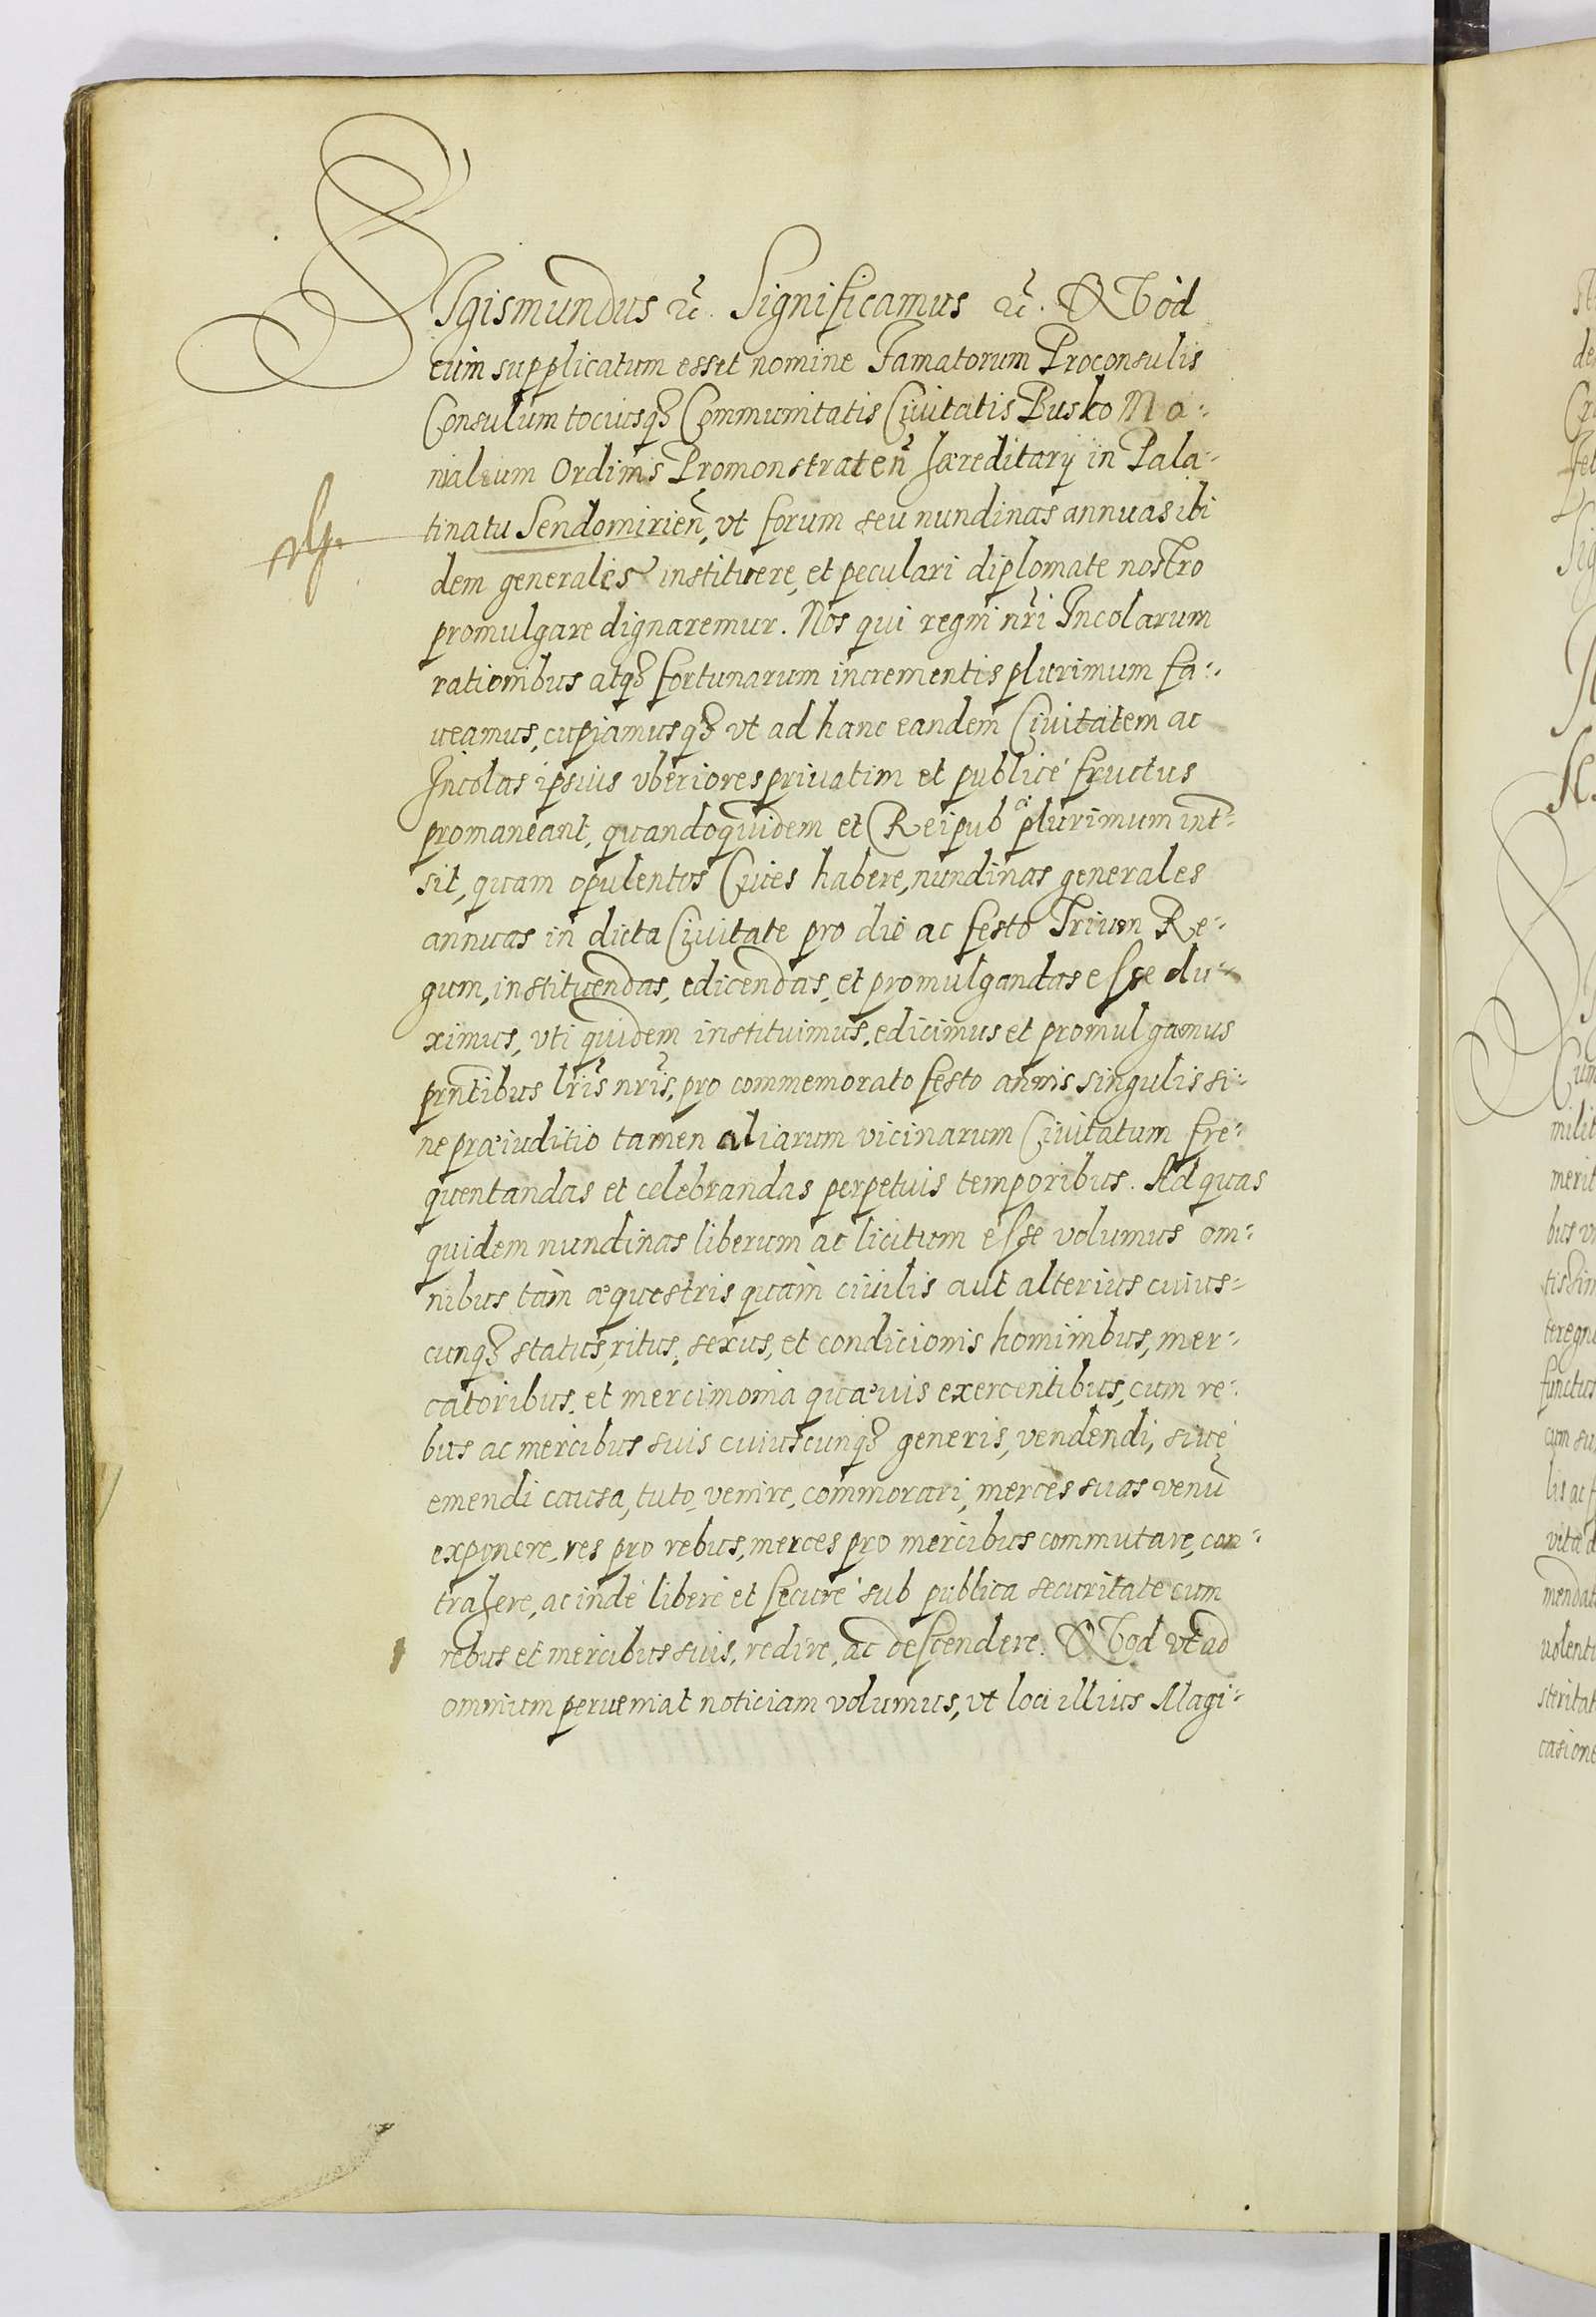 SIgismundus &c. Significamus &c. QVòd
cùm supplicatum esset nomine Famatorum Proconsulis
Consulum tociusq3 Communitatis Civitatis Busko Mo-
nialium Ordinis Premonstrateñ hæreditarij in Pala-
tinatu Sendomirieñ, vt forum seu nundinas annuas ibi
dem generales instituere, et peculari diplomate nostro
promulgare dignaremur. Nos qui regni nri Incolarum
rationibus atq3 fortunarum incrementis plurimum fa-
ueamus, cupiamusq3 vt ad hanc eandem Ciuitatem ac
Incolas ipsius vberiores priuatim et publicè fructus
promaneant, quandoquidem et Reipub: plurimum int-
sit, quam opulentos Ciues habere, nundinas generales
annuas in dicta Ciuitate pro die ac festo Trium Re-
gum, instituendas, edicendas, et promulgandas esse du-
ximus, vti quidem instituimus, edicimus et promulgamus
prntibus lris nris, pro commemorato festo annis singulis si-
ne præiuditio tamen aliarum vicinarum Ciuitatum fre-
quentandas et celebrandas perpetuis temporibus. Ad quas
quidem nundinas liberum ac licitum esse volumus om-
nibus tàm æquestris quàm ciuilis aut alterius cuius-
cunq3 status, ritus, sexus, et condicionis hominibus, mer-
catoribus, et mercimonia quæuis exercentibus, cum re-
bus ac mercibus suis cuiuscunq3 generis, vendendi, siue
emendi causa, tuto venire, commorari, merces suas venũ
exponere, res pro rebus, merces pro mercibus commutare, con-
trahere, ac indè liberè et securè sub publica securitate cum
rebus et mercibus suis, redire, ac descendere. QVod vt ad
omnium perueniat noticiam volumus, vt loci illius Magi-